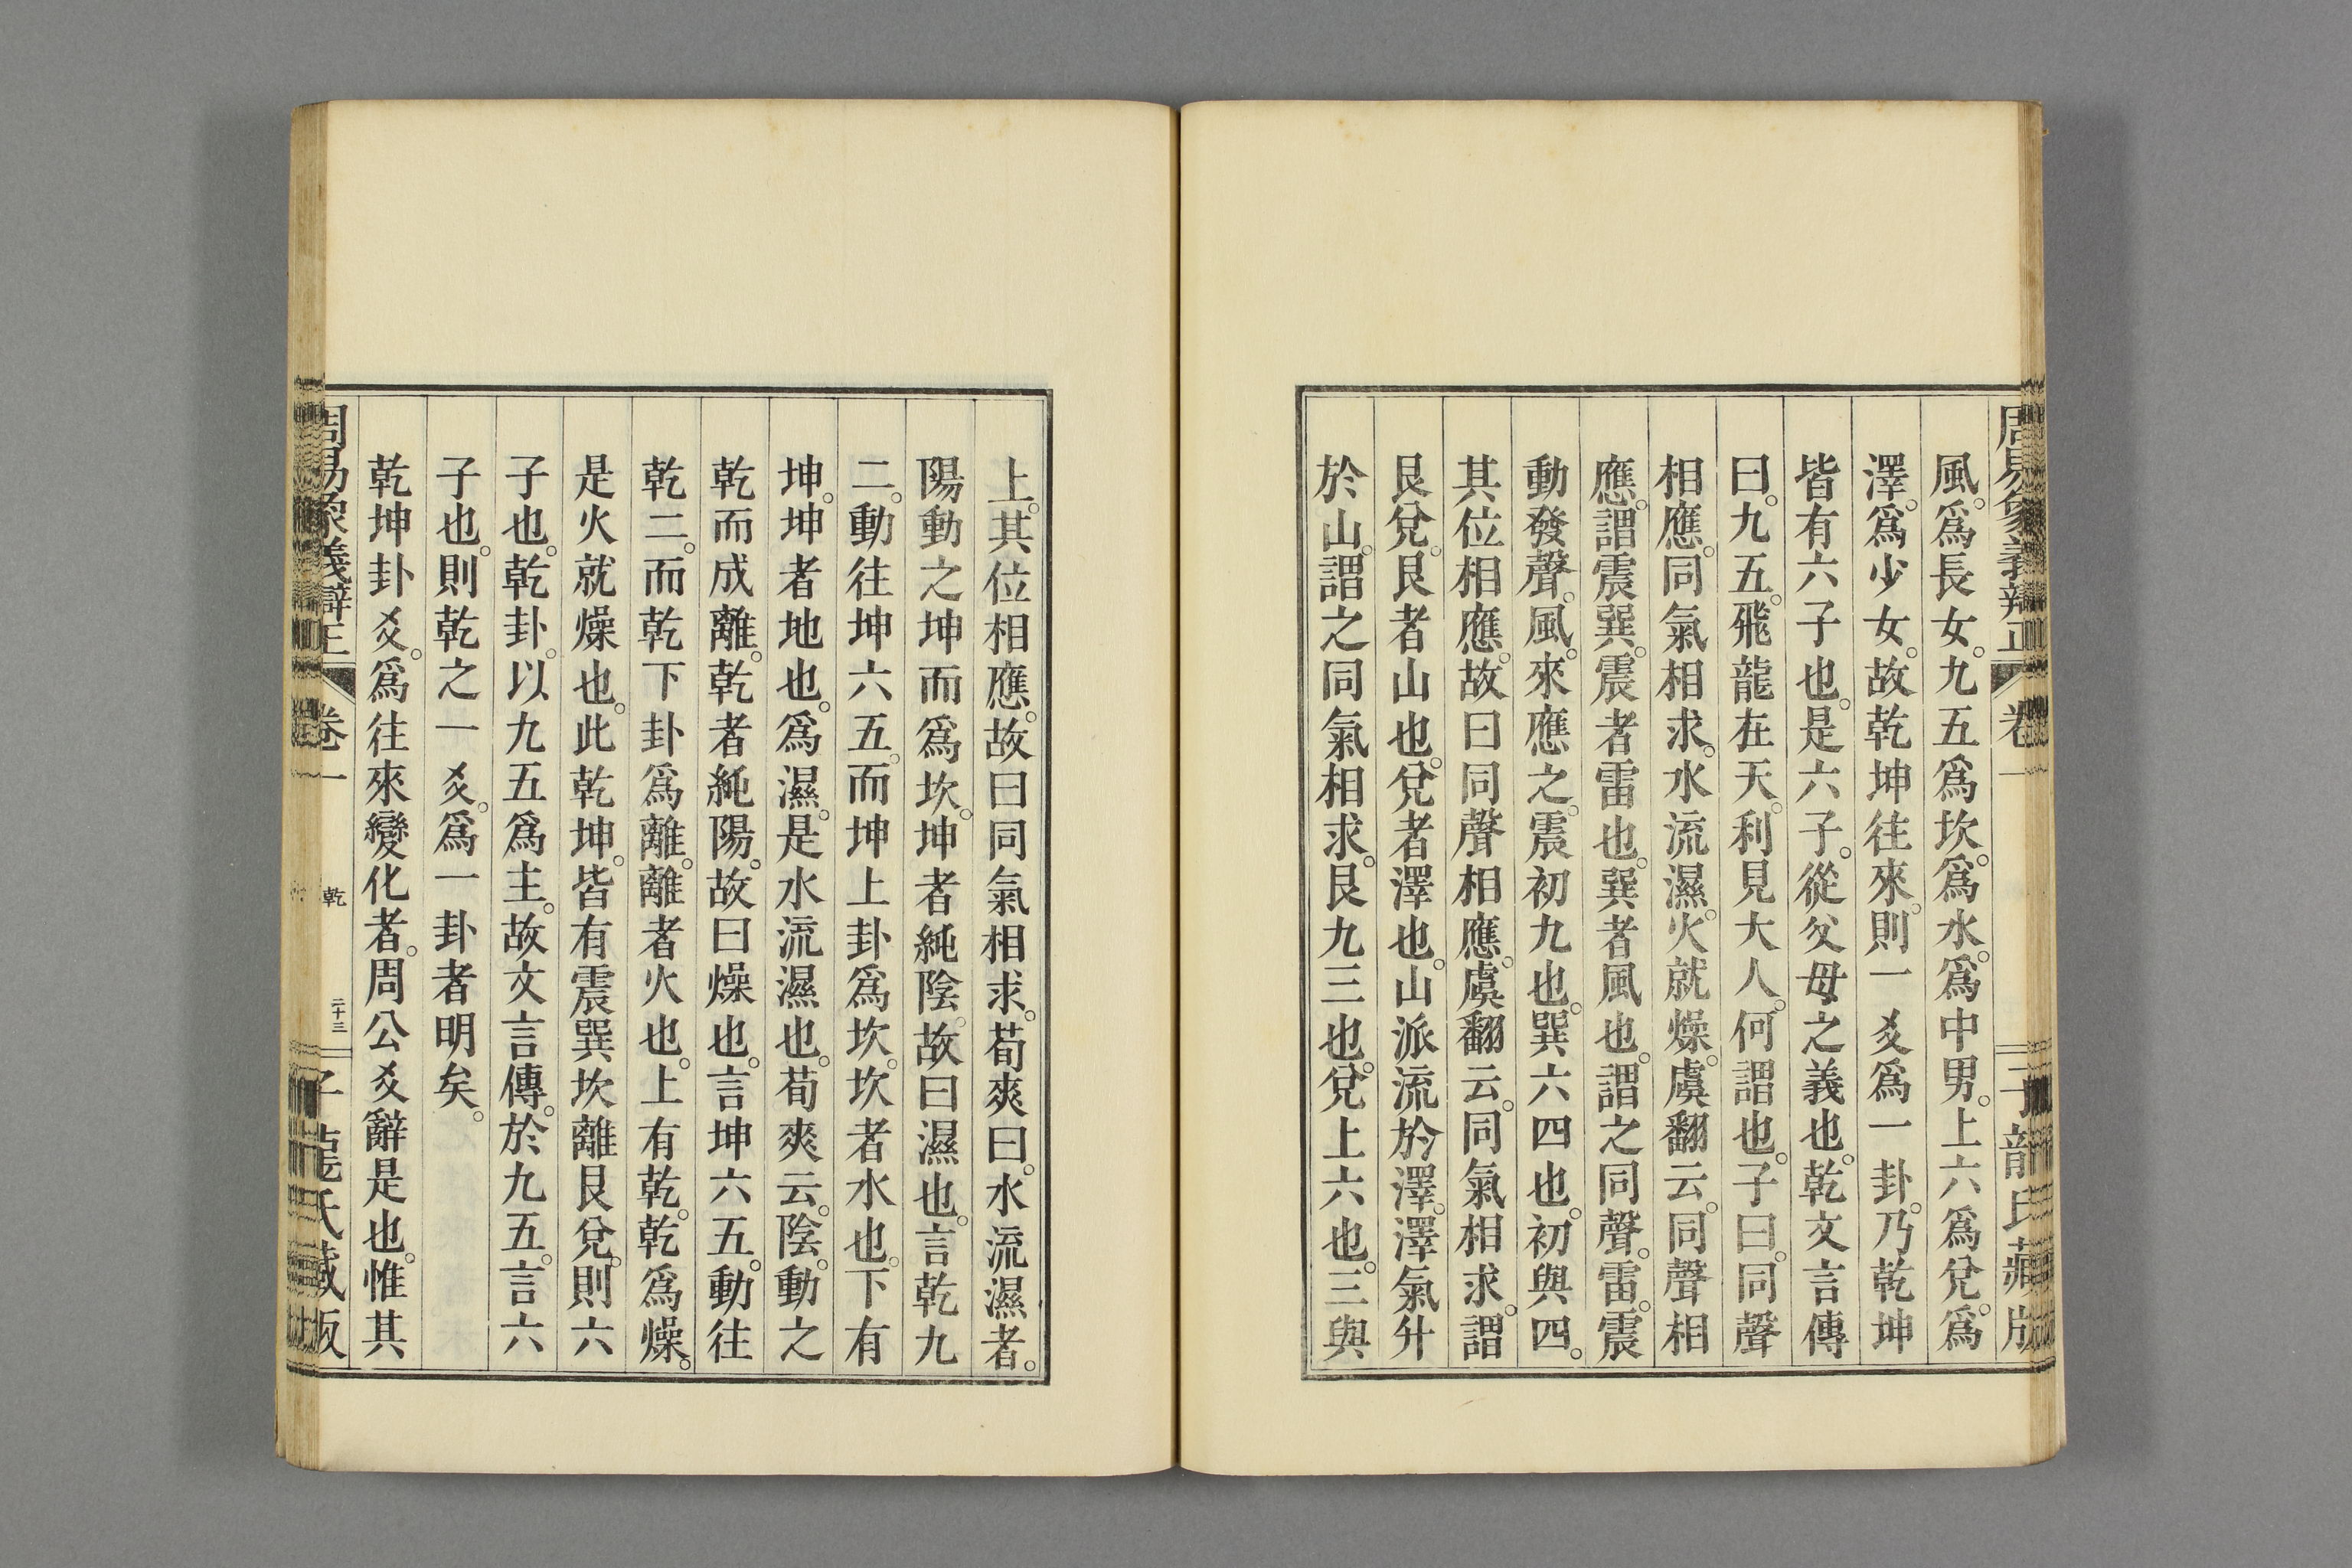 周易象義辯正 卷一
風。爲長女。九五爲坎。爲水。爲中男。上六爲兌。爲
澤。爲少女。故乾坤往來。則一爻爲一卦。乃乾坤
皆有六子也。是六子。從父母之義也。乾文言傳
曰。九五。飛龍在天。利見大人。何謂也。子曰。同聲
相應。同氣相求。水流濕。火就燥。虞翻云。同聲相
應。謂震巽。震者雷也。巽者風也。謂之同聲。雷。震
動發聲。風。來應之。震初九也。巽六四也。初與四。
其位相應。故曰同聲相應。虞翻云。同氣相求。謂
艮兌。艮者山也。兌者澤也。山派流於澤。澤氣升
於山。謂之同氣相求。艮九三也。兌上六也。三與
上。其位相應。故曰同氣相求。荀爽曰。水流濕者。
陽動之坤而爲坎。坤者純陰。故曰濕也。言乾九
二。動往坤六五。而坤上卦爲坎。坎者水也。下有
坤。坤者地也。爲濕。是水流濕也。荀爽云。陰。動之
乾而成離。乾者純陽。故曰燥也。言坤六五。動往
乾二。而乾下卦爲離。離者火也。上有乾。乾爲燥。
是火就燥也。此乾坤。皆有震巽坎離艮兌。則六
子也。乾卦。以九五爲主。故文言傳。於九五。言六
子也。則乾之一爻。爲一卦者明矣。
乾坤卦爻。爲往來變化者。周公爻辭是也。惟其
周易象義辯正 卷一 乾 二十三